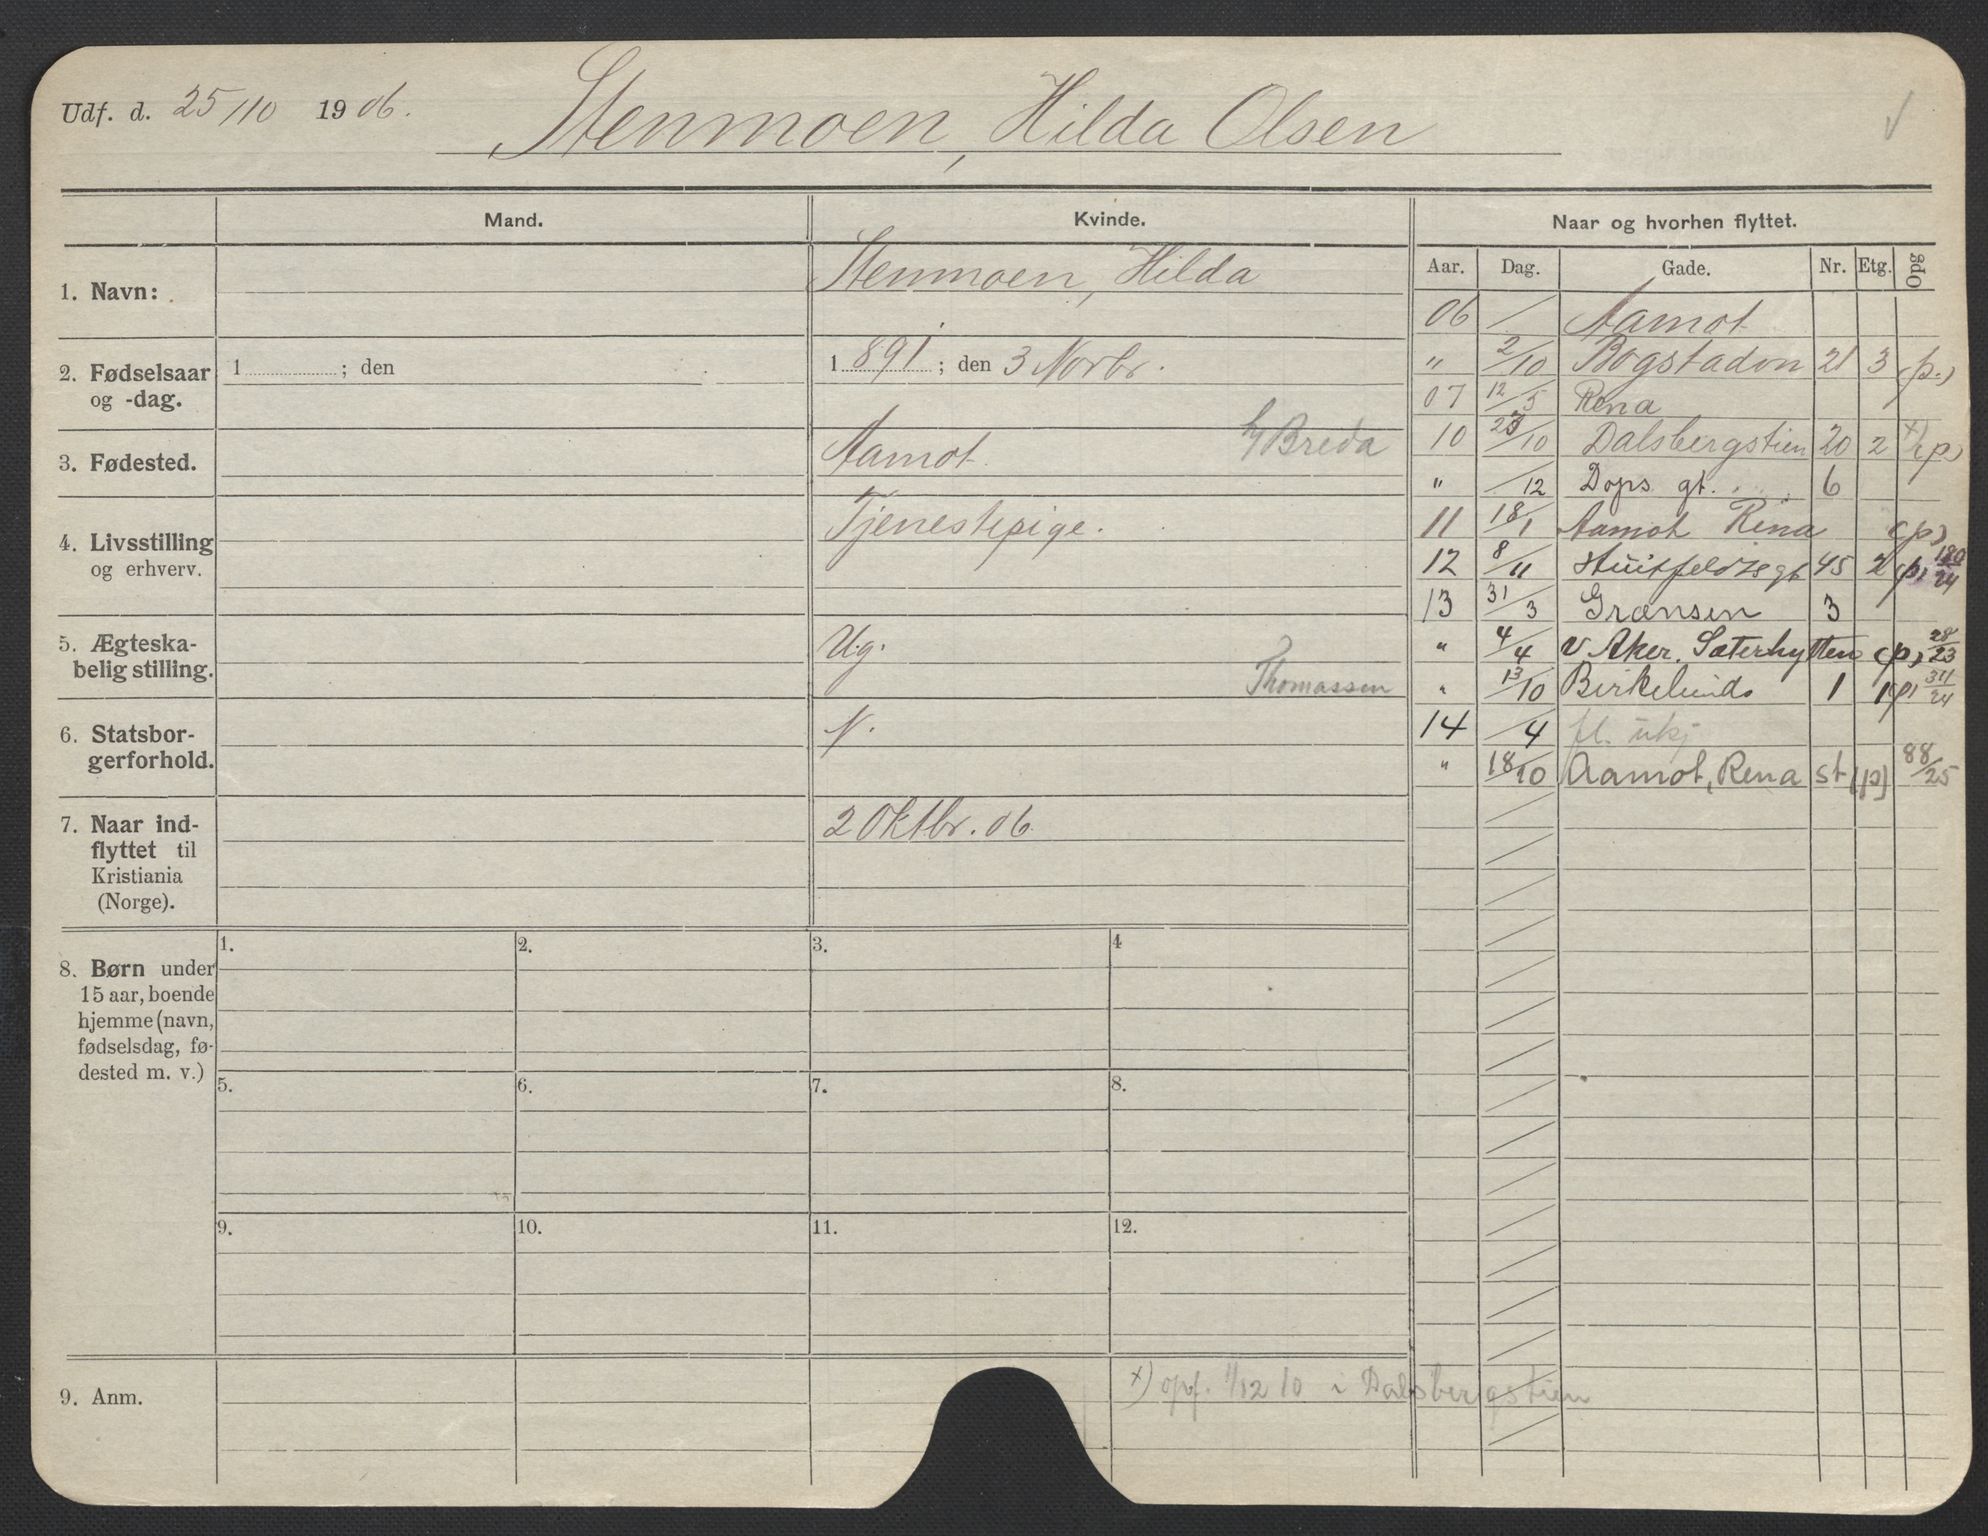 Udf. d. 25/10 1906.
Stenmoen, Hilda Olsen
Mand.
Kvinde.
Naar og hvorhen flyttet.
1. Navn:
Stenmoen, Hilda
2. Fødselsaar
og -dag.
1 ; den
1891; den 3 Novbr.
3. Fødested.
Aamot
Breda
4. Livsstilling
og erhverv.
Tjenestepige.
5. Ægteska-
belig stilling.
Ug.
Thomassen
6. Statsbor-
gerforhold.
N.
7. Naar ind-
flyttet til
Kristiania
(Norge).
2 Oktbr. 06
8. Børn under
15 aar, boende
hjemme (navn,
fødselsdag, fø-
dested m. v.)
1. 2. 3. 4
5. 6. 7. 8.
9. 10. 11. 12.
9. Anm.
x) opf. 1/12 10 i Dalsbergstien
Aar. Dag. Gade. Nr. Etg. Opg
06 / Aamot
" 2/10 Bogstadvn 21 3 (p.)
07 12/5 Rena
10 23/10 Dalsbergstien 20 2 x) (p)
" /12 Dops gt. 6
11 18/1 Aamot Rena (p)
12 8/11 Huitfeldts gt 45 2 (p) 180/24
13 31/3 Grænsen 3
" 4/4 V Aker. Sæterhytten (p) 28/23
" 13/10 Birkelunds 1 1 (p) 311/24
14 /4 fl. ukj
" 18/10 Aamot, Rena st (p) 88/25